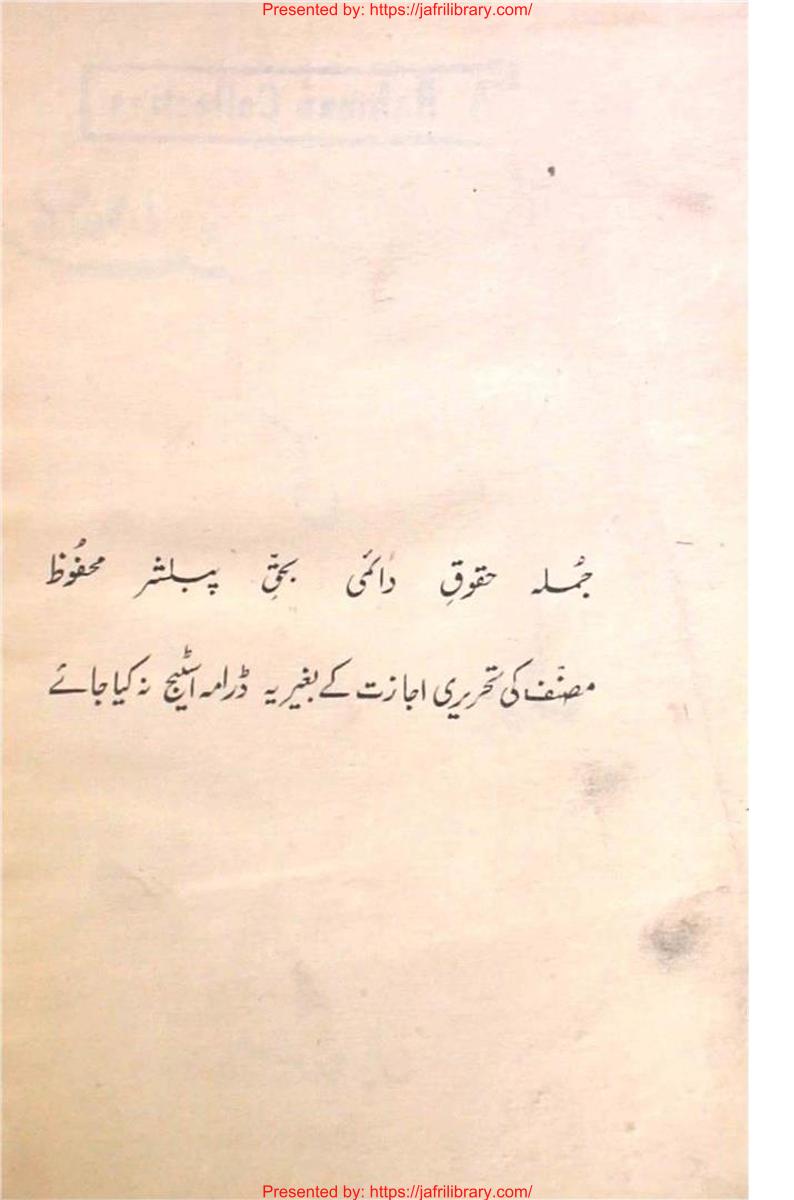 Presented by: https://jafrilibrary.com/
جُملہ حقوقِ دائمی بحقِّ پبلشر محفُوظ
مصنّف کی تحریری اجازت کے بغیر یہ ڈرامہ اسٹیج نہ کیا جائے
Presented by: https://jafrilibrary.com/